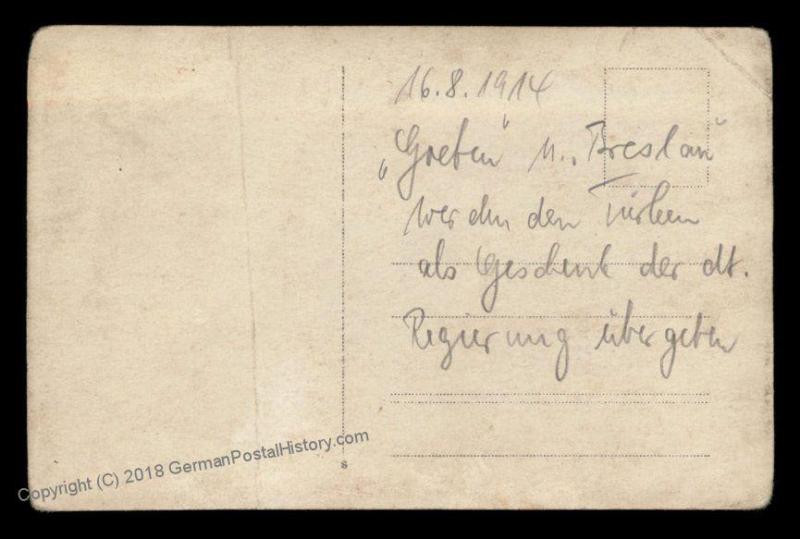 16.8.1914
„Goeben" u. „Breslau"
werden den Türken
als Geschenk der dt.
Regierung übergeben
s
Copyright (C) 2018 GermanPostalHistory.com